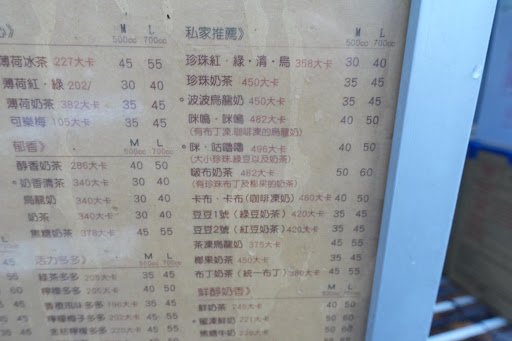 M L
500cc 700cc
薄荷冰茶 227大卡 45 55
薄荷紅·綠 202/ 30 40
薄荷奶茶 382大卡 35 45
可樂梅 105大卡 35 45
M L
醇香奶茶 286大卡 40 50
奶香清茶 340大卡 30 40
烏龍奶 340大卡 30 40
奶茶 340大卡 30 40
焦糖奶茶 378大卡 45 55
活力多多》 M L
綠茶多多 205大卡 35 45
檸檬多多 40 50
檸檬梅子多多 45 55
私家推薦》 M L
500cc 700cc
珍珠紅·綠·清·烏 358大卡 30 40
珍珠奶茶 450大卡 35 45
波波烏龍奶 450大卡 35 45
咪嗚·咪嗚 462大卡 40 50
(有布丁凍.咖啡凍的烏龍奶)
咪·咕嚕嚕 496大卡 40 50
(大小珍珠.綠豆以及奶茶)
啵布奶茶 462大卡 50 60
(有珍珠布丁及椰果的奶茶)
卡布·卡布(咖啡凍奶) 460大卡 40 50
豆豆1號 (綠豆奶茶) 420大卡 35 45
豆豆2號 (紅豆奶茶) 420大卡 35 45
茶凍烏龍奶 375大卡 45 55
椰果奶茶 450大卡 35 45
布丁奶茶 (統一布丁) 40 50
鮮醇奶香》 M L
鮮奶茶 40 50
蜜凍鮮奶 221大卡 50 60
焦糖牛奶 50 60